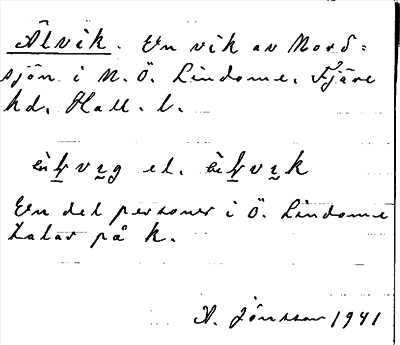 Älvik. En vik av Nord=
sjön i N. Ö. Lindome, Fjäre
hd, Hall. l.
el.
En del personer i Ö. Lindome
talar på k.
A. Jönsson 1941